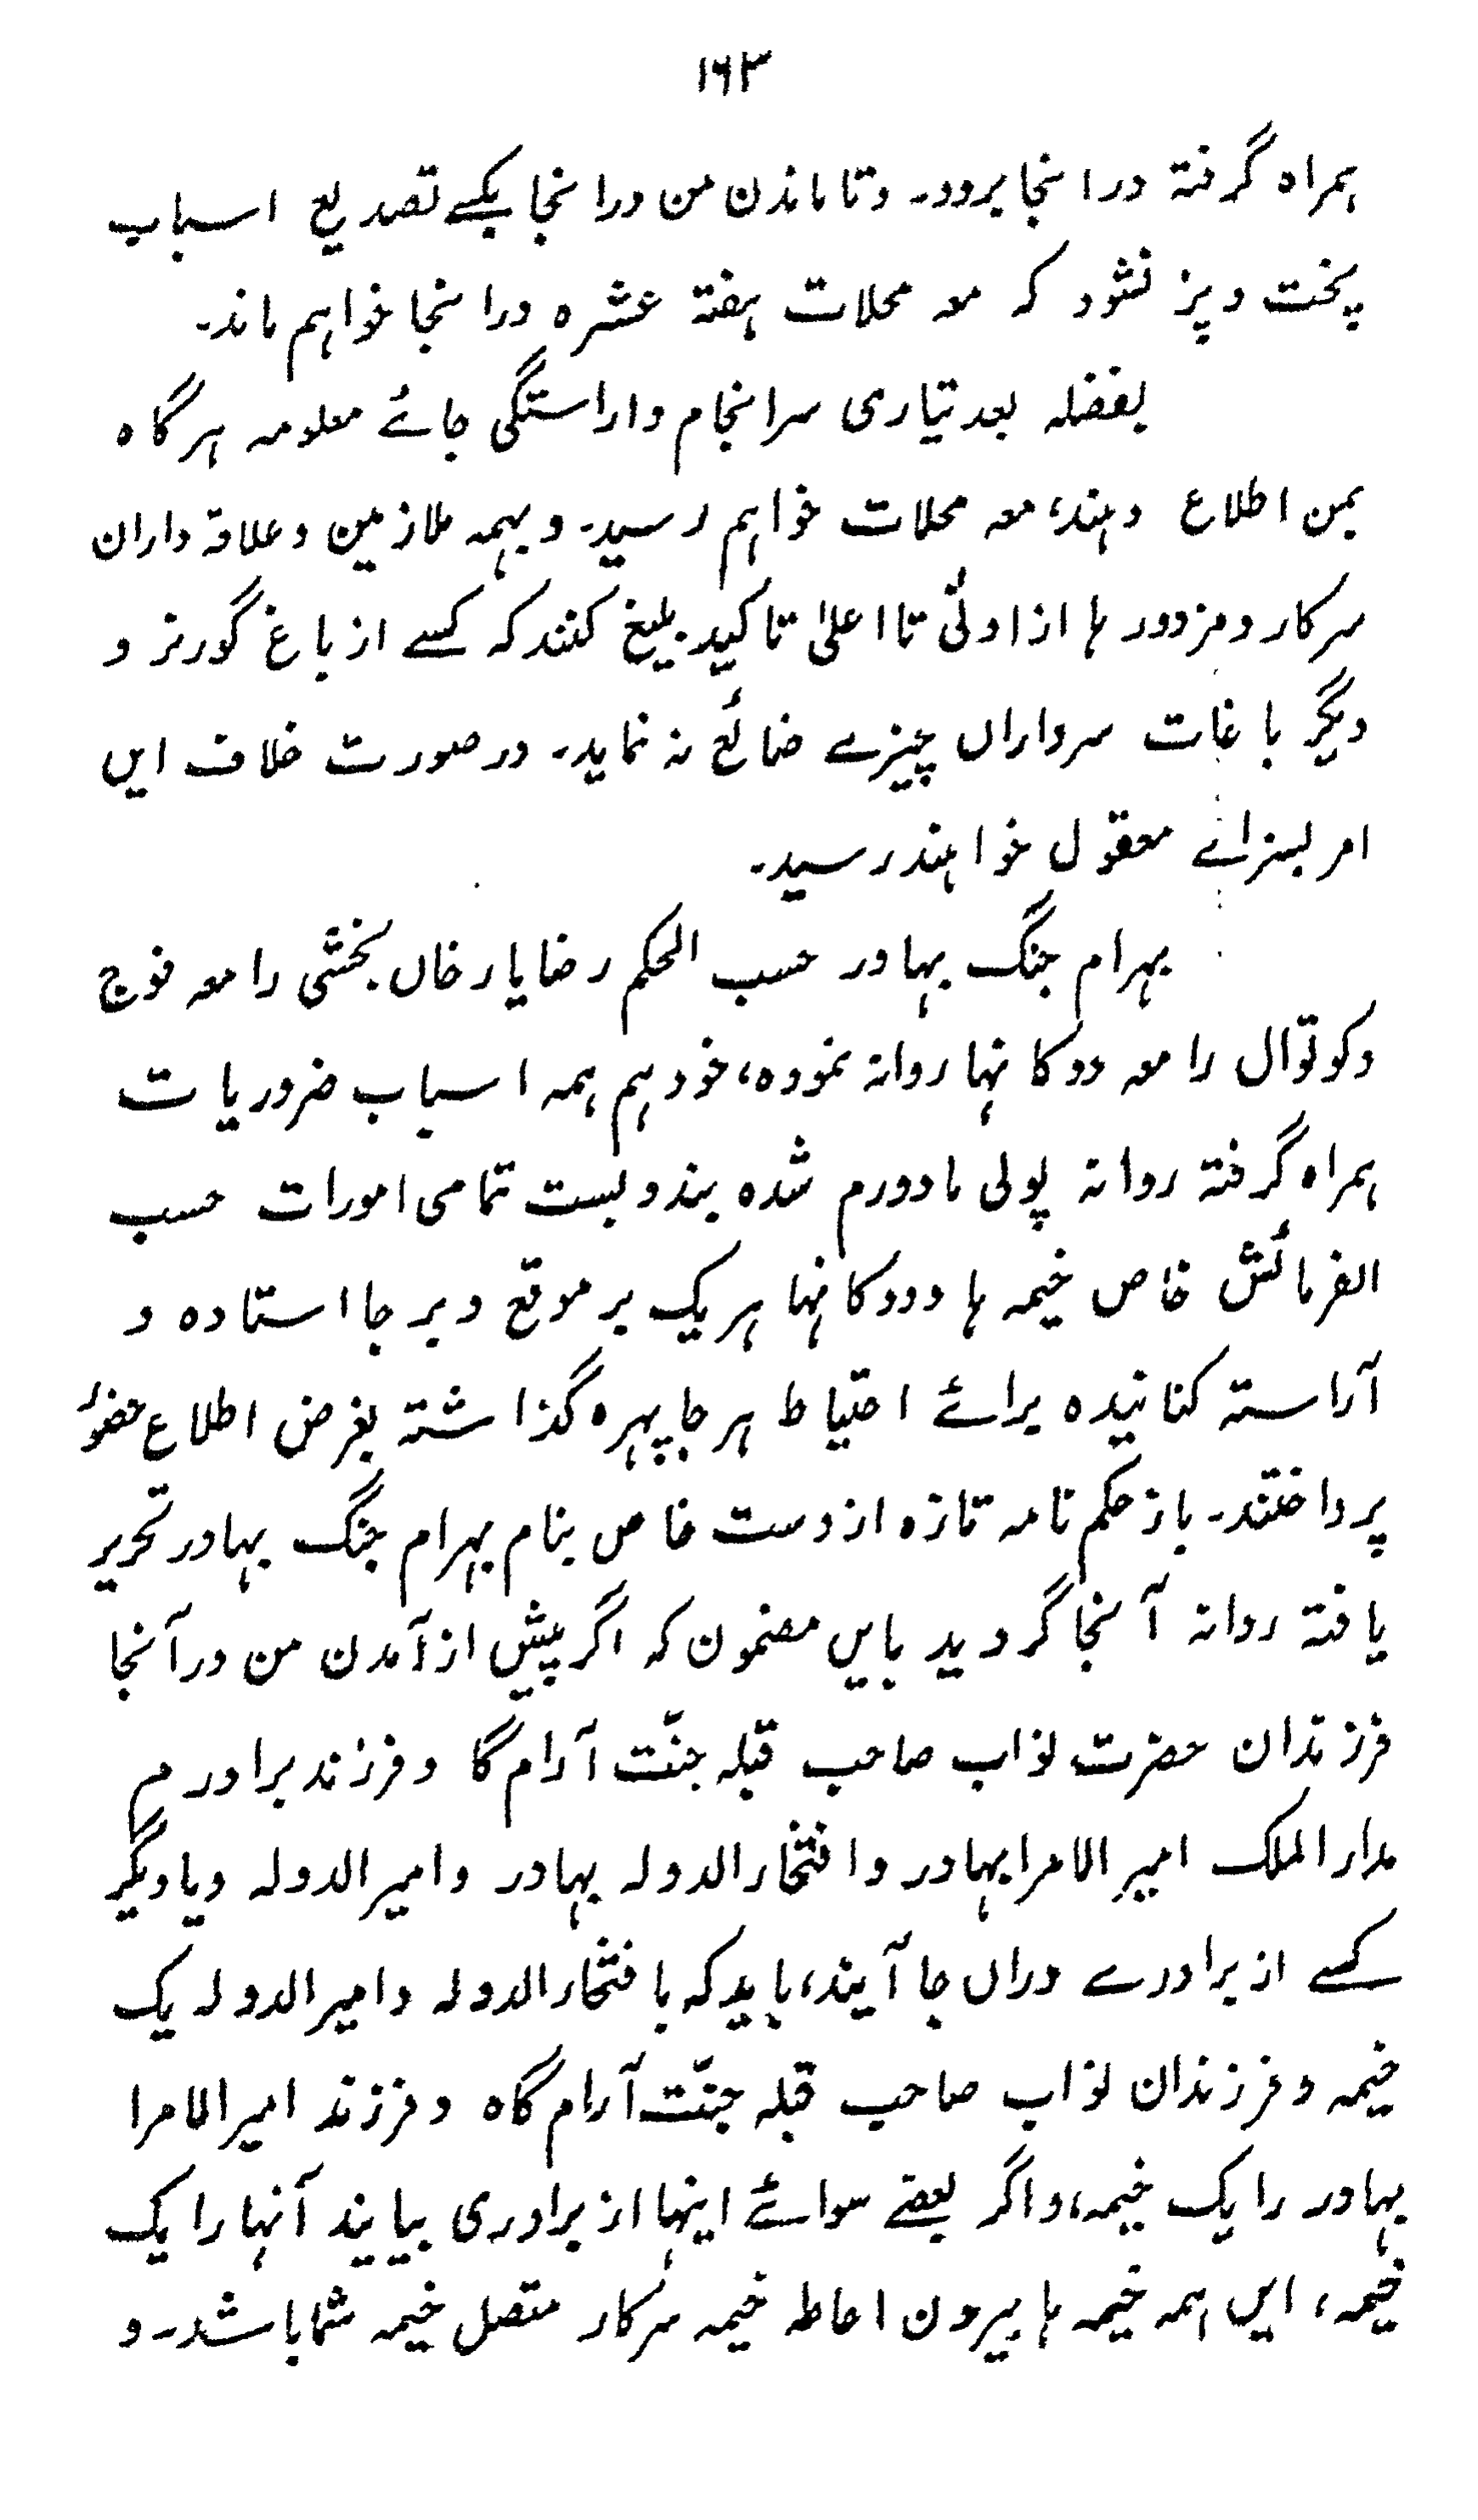 ۱۶۳
ہمراہ گرفتہ درانجا برود۔ وتا ماندن من درانجا بکسے تصدیع اسباب
پخت وپز نشود کہ معہ محلات ہفتہ عشرہ درانجا خواہم ماند۔
بفضلہ بعد تیاری سرانجام واراستگی جائے معلومہ ہرگاہ
بمن اطلاع دہند، معہ محلات خواہم رسید۔ وبہمہ ملازمین وعلاقہ داران
سرکار ومزدورہا از ادنیٰ تا اعلیٰ تاکید بلیغ کنند کہ کسے از باغ گورنر و
دیگر باغات سرداراں چیزے ضائع نہ نماید۔ در صورت خلاف ایں
امر بسزائے معقول خواہند رسید۔
بہرام جنگ بہادر حسب الحکم رضا یار خاں بخشی را معہ فوج
وکوتوال را معہ دوکانہا روانہ نمودہ، خود ہم ہمہ اسباب ضروریات
ہمراہ گرفتہ روانہ پولی مادورم شدہ بندوبست تمامی امورات حسب
الفرمائش خاص خیمہ ہا ودوکانہا ہریک بر موقع وبر جا استادہ و
آراستہ کنانیدہ برائے احتیاط ہر جا پہرہ گذاشتہ بغرض اطلاع حضور
پرداختند۔ باز حکم نامہ تازہ از دست خاص بنام بہرام جنگ بہادر تحریر
یافتہ روانہ آنجا گردید بایں مضمون کہ اگر پیش از آمدن من در آنجا
فرزندان حضرت نواب صاحب قبلہ جنّت آرام گا وفرزند برادرم
مدار الملک امیر الامرا بہادر وافتخار الدولہ بہادر وامیر الدولہ ویا دیگر
کسے از برادرے دراں جا آیند، باید کہ با فتخار الدولہ وامیر الدولہ یک
خیمہ وفرزندان نواب صاحب قبلہ جنّت آرام گاہ وفرزند امیر الامرا
بہادر را یک خیمہ، واگر بعضے سوائے اینہا از برادری بیایند آنہا را یک
خیمہ، ایں ہمہ خیمہ ہا بیرون احاطہ خیمہ سرکار متصل خیمہ شما باشد۔ و